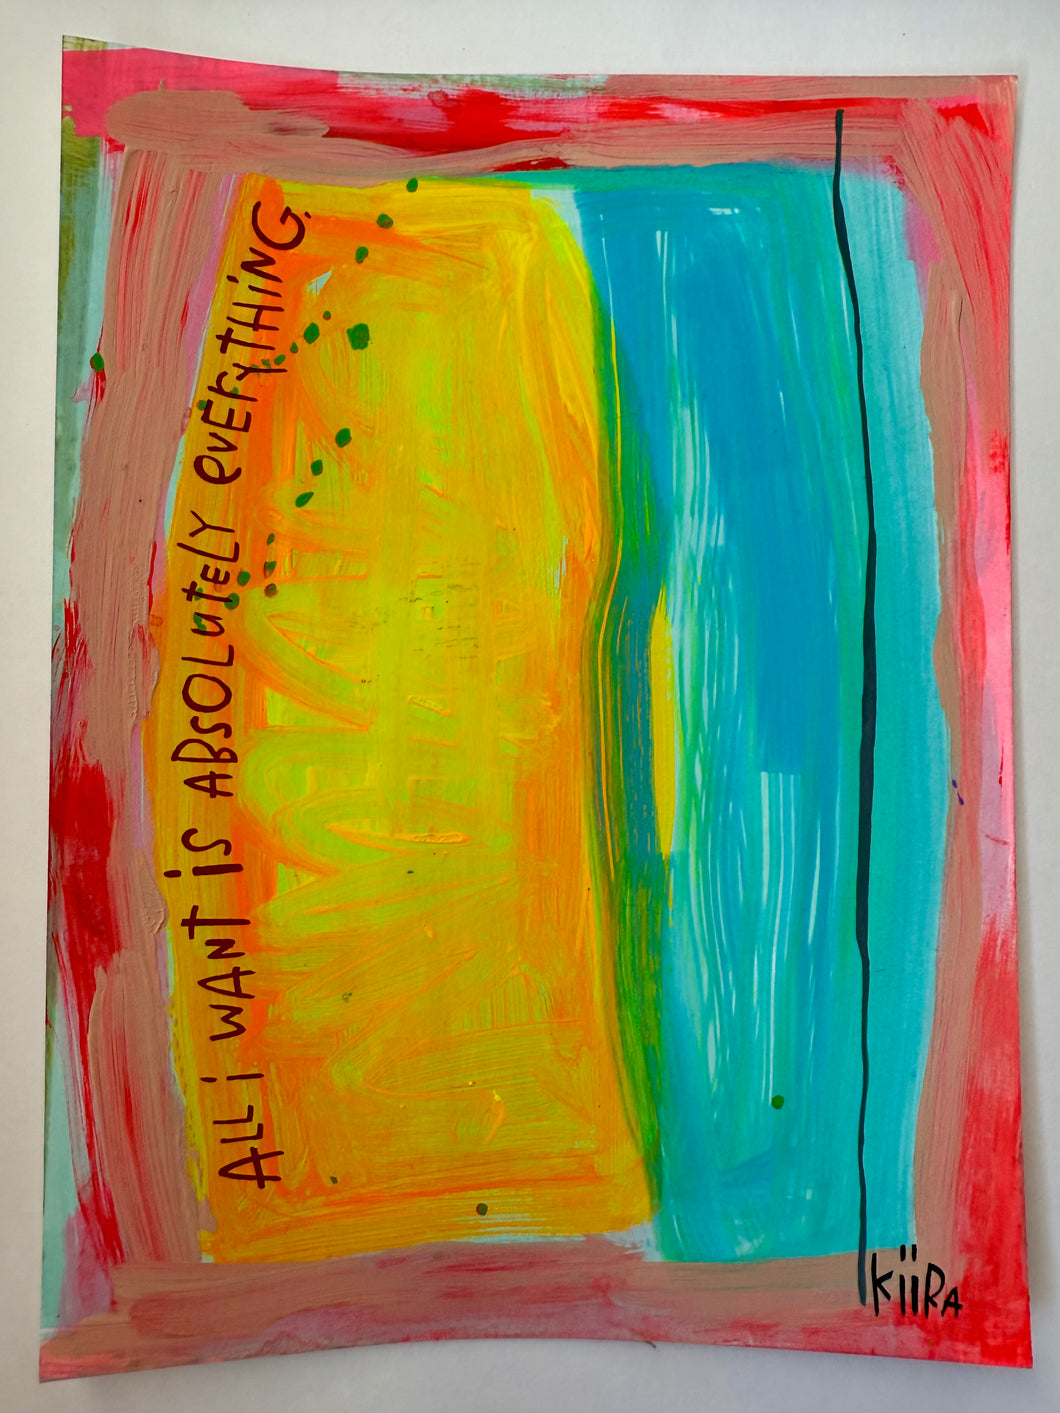 ALL i WANT iS ABSOLUtELY eVErYTHiNG.
KiiRA